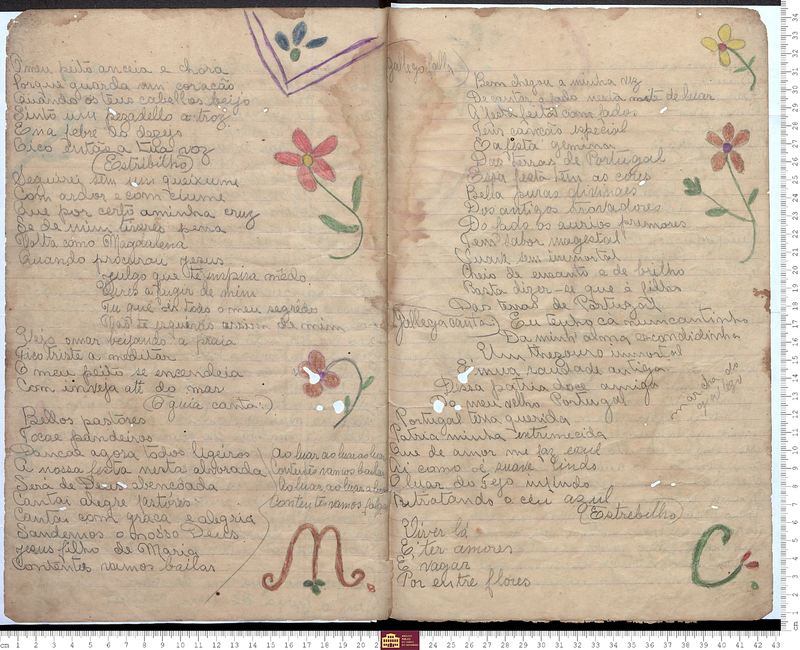 O meu peito anceia e chora
Porque guarda um coração
Quando os teus cabellos beijo
Sinto um pezadello atroz
E na febre do dezejo
Fico então a tua voz
(Estrebilho)
Seguirei sem um queixume
Com ardor e com ciume
Que por certo a minha cruz
Se de mim tiverdes pena
Volta como Magdalena
Quando procurou Jesus
Julgo que te inspira mêdo
Vires a fugir de mim
Tu que és todo o meu segrêdo
Não te esquenas assim de mim
Vejo o mar beijando a praia
Fico triste a meditar
O meu peito se encendeia
Com inveja até do mar
(O guia canta:)
Bellos pastores
Tocae pandeiros
Dancae agora todos ligeiros
A nossa festa nesta alvorada
Será de Deus abenedada
Cantai alegre pastores
Cantai com graca e alegria
Sandemos o nosso Deus
Jesus filho de Maria
Contentes vamos bailar
Ao luar ao luar ao luar
Contentes vamos bailar
Ao luar, ao luar, a luar
Contentes vamos
M
Gallego falla
Bem chegou a minha voz
De cantar o fado nesta noite de luar
A festa feita com fado
Tem canção especial
E a lista genuina
Das terras de Portugal
Essa festa tem as côres
Bella puras divinaes
Dos antigos trovadores
Do fado os aurios primores
Tem sabor magestal
Suave em immortal
Cheio de encanto e de brilho
Basta dizer-se que é filho
Das terras de Portugal
Gallego canta
Eu tenho ca num cantinho
Da minh'alma escondidinho
Um thezouro immortal
É mua saudade antiga
Desta patria doce amiga
Do meu velho Portugal
marcha do
Portugal terra querida
Patria minha entrimecida
Que de amor me faz
Ai como é suave lindo
O luar do Tejo infindo
Retratando o céu azul
(Estrebilho)
Viver lá
É ter amores
É vagar
Por entre flores
C